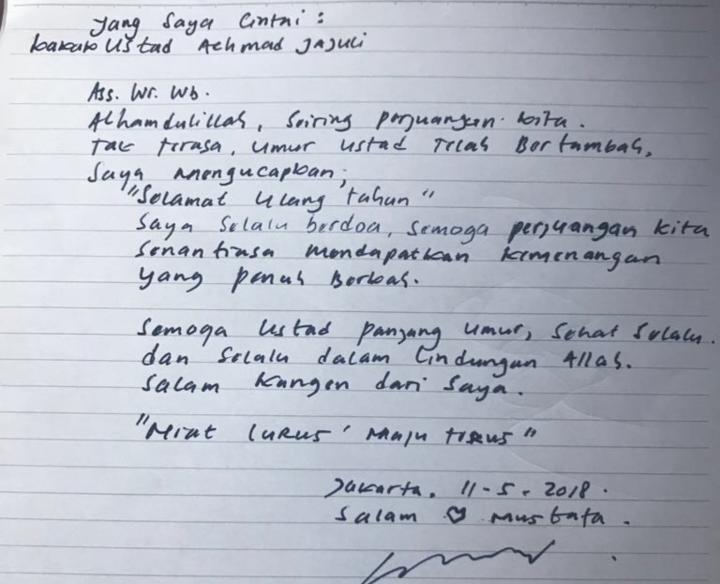 Yang Saya Cintai :
kakak Ustad Achmad Jajuli
Ass. Wr. Wb.
Alhamdulillah, Seiring perjuangan kita.
Tak terasa, umur ustad Telah Bertambah,
Saya mengucapkan;
"Selamat Ulang tahun"
Saya Selalu berdoa, Semoga perjuangan kita
Senantiasa mendapatkan kemenangan
yang penuh Berkah.
Semoga Ustad panjang umur, Sehat Selalu.
dan Selalu dalam Lindungan Allah.
Salam kangen dari Saya.
"Niat Lurus ' Maju terus"
Jakarta, 11-5-2018.
Salam ♡ Mustafa.